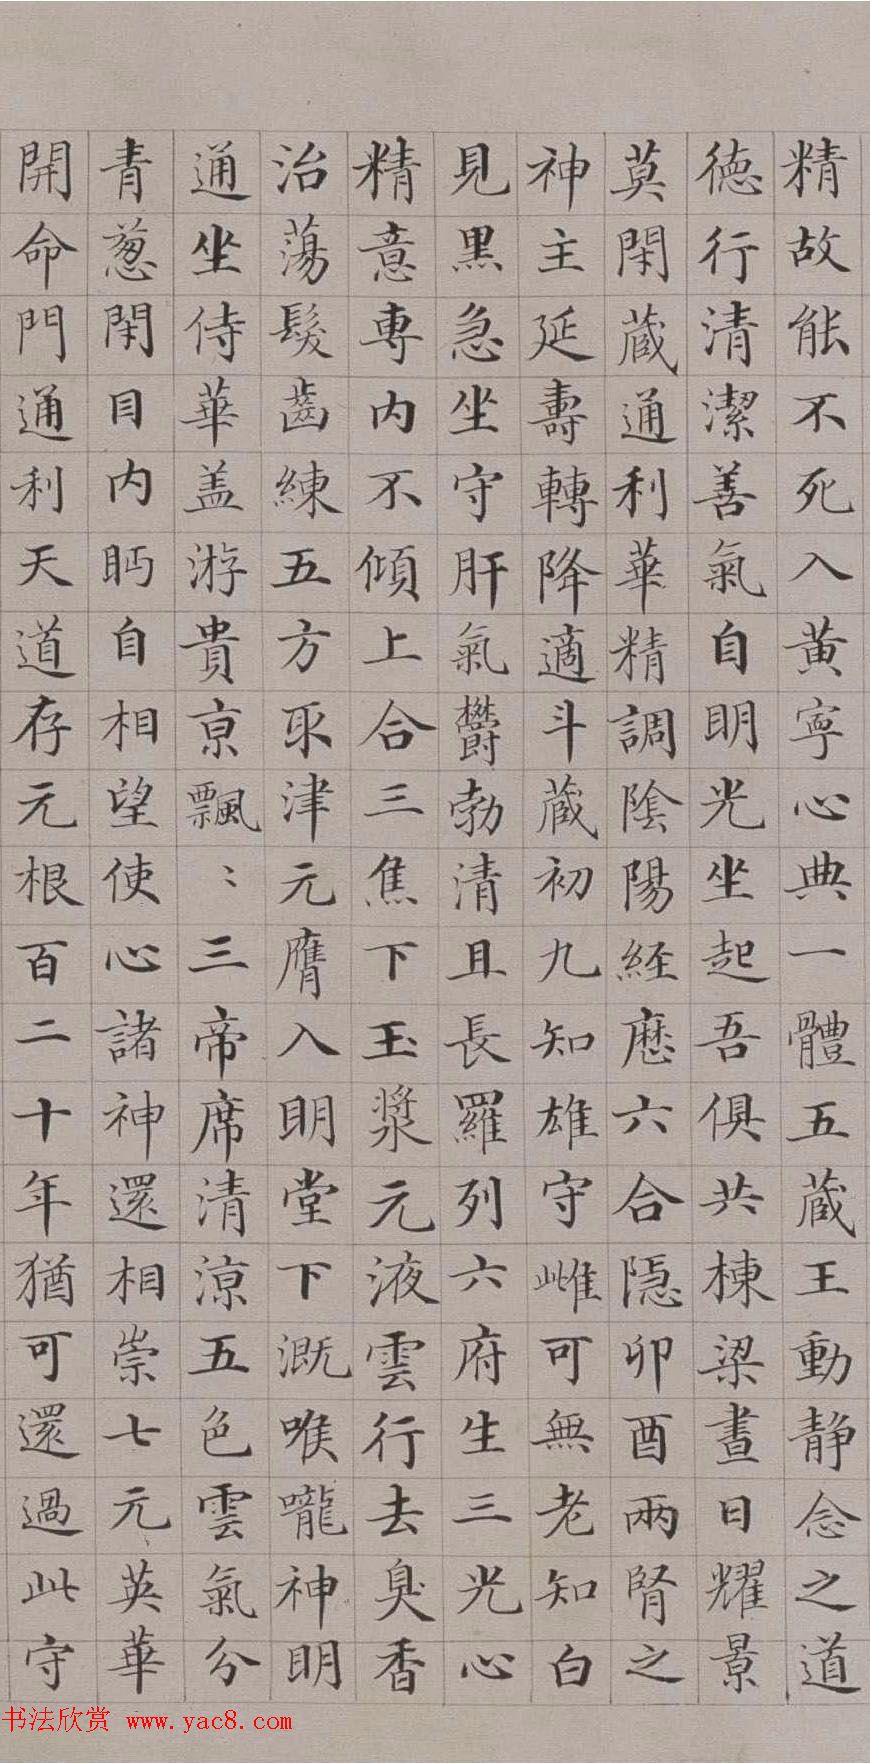 精故能不死入黄寧心典一體五蔵王動静念之道
德行清潔善氣自明光坐起吾俱共棟梁晝日耀景
莫閇蔵通利華精調陰陽経歴六合隠卯酉兩腎之
神主延壽轉降適斗蔵初九知雄守雌可無老知白
見黒急坐守肝氣鬱勃清且長羅列六府生三光心
精意専内不傾上合三焦下玉漿元液雲行去臭香
治蕩髮齒練五方取津元膺入明堂下溉喉嚨神明
通坐侍華盖游貴京飄〻三帝席清涼五色雲氣分
青葱閇目内眄自相望使心諸神還相崇七元英華
開命門通利天道存元根百二十年猶可還過此守
书法欣赏 www.yac8.com